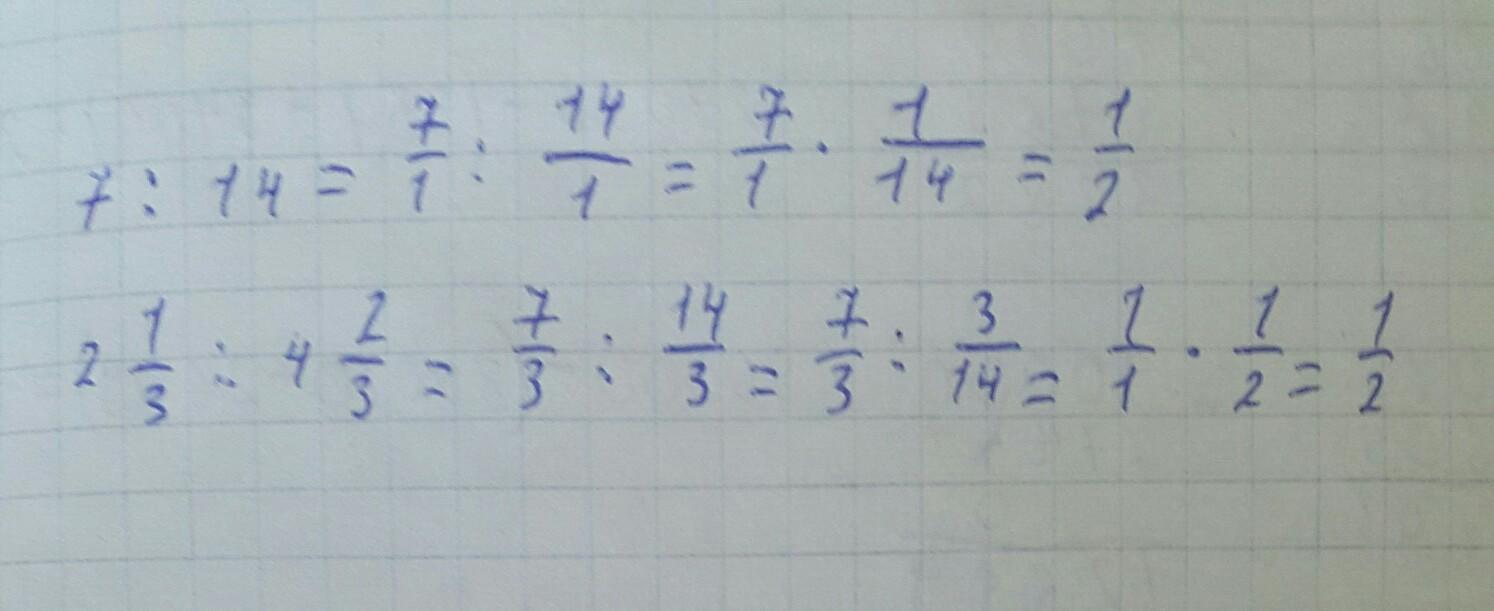 7 : 14 = 7/1 : 14/1 = 7/1 · 1/14 = 1/2
2 1/3 : 4 2/3 = 7/3 : 14/3 = 7/3 : 3/14 = 1/1 · 1/2 = 1/2